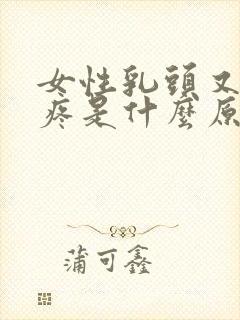 女性乳頭又
疼是什麼原
蒲可鑫